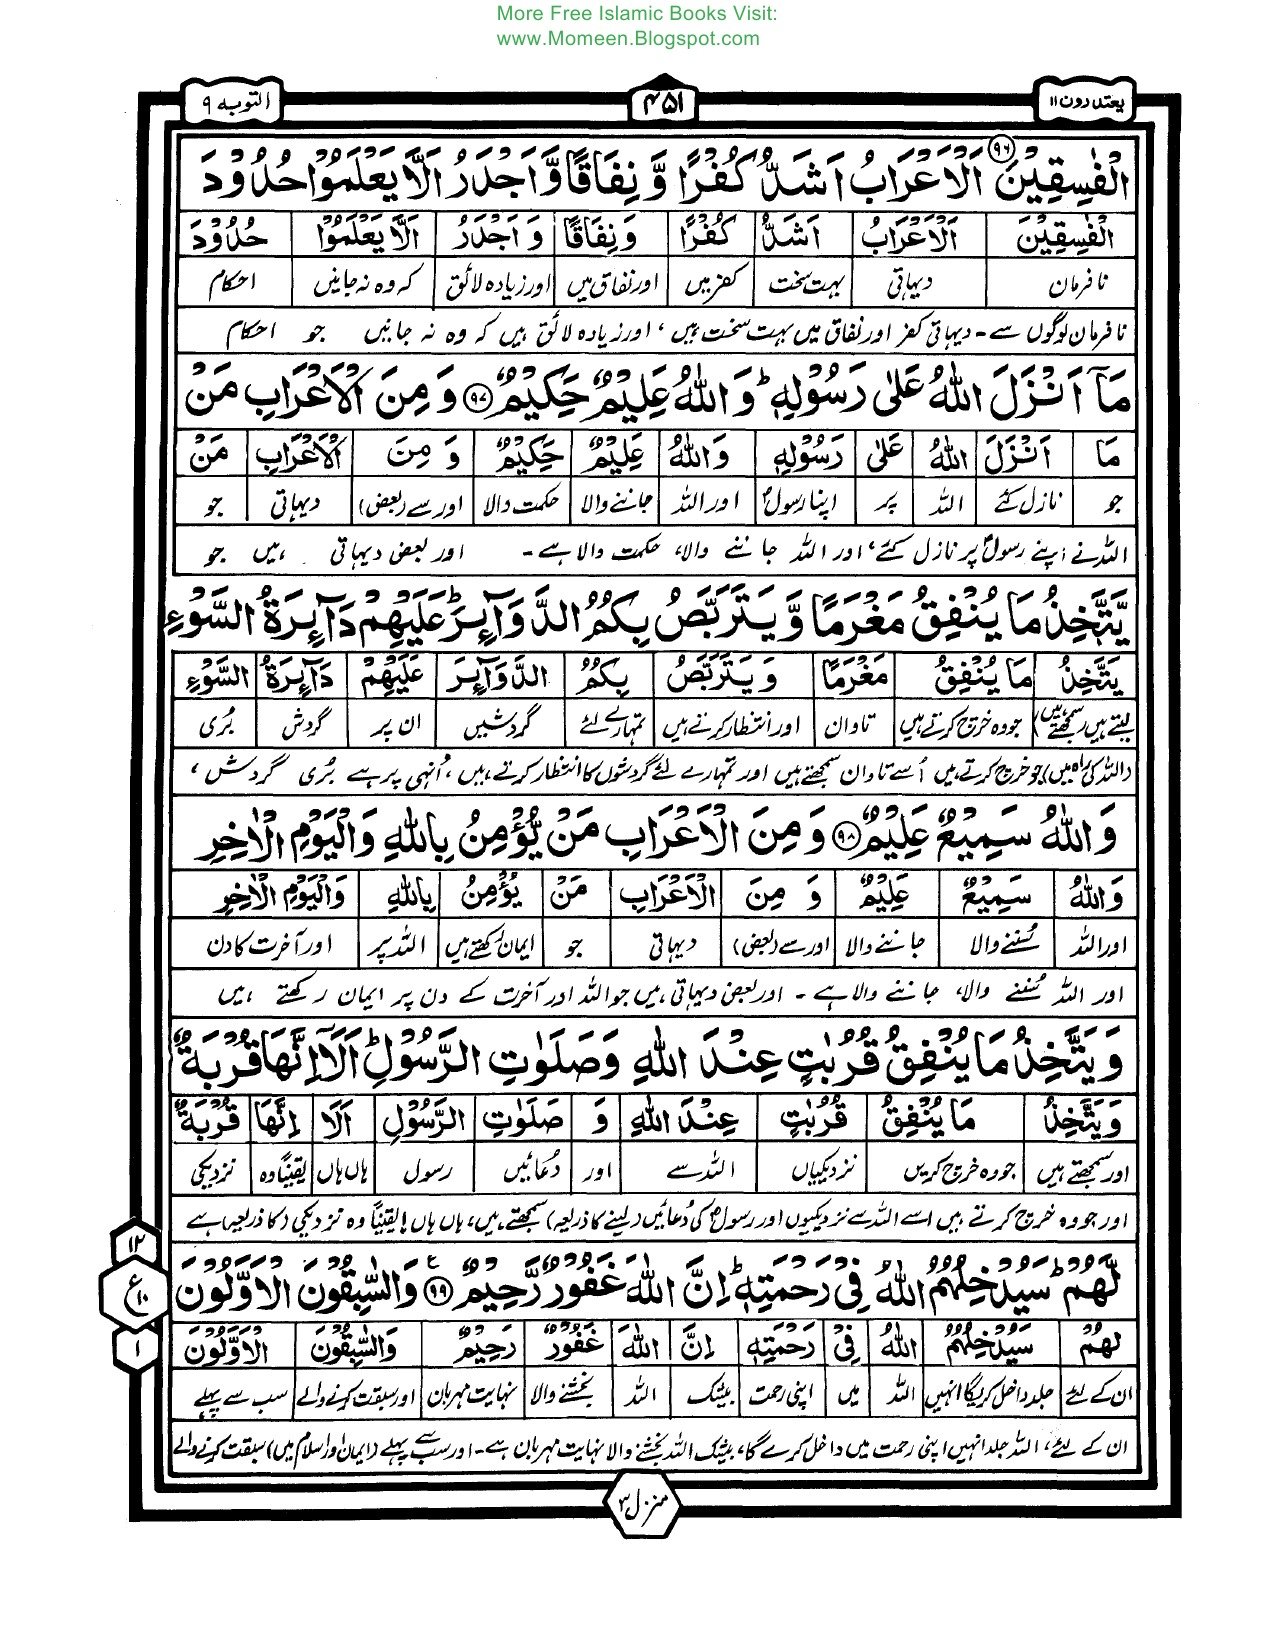 More Free Islamic Books Visit:
www.Momeen.Blogspot.com
یعتذرون ۱۱
۴۵۱
التوبه ۹
الْفٰسِقِيْنَ ۹۶ اَلْاَعْرَابُ اَشَدُّ كُفْرًا وَّنِفَاقًا وَّاَجْدَرُ اَلَّا يَعْلَمُوْا حُدُوْدَ
الْفٰسِقِيْنَ اَلْاَعْرَابُ اَشَدُّ كُفْرًا وَنِفَاقًا وَاَجْدَرُ اَلَّا يَعْلَمُوْا حُدُوْدَ
نافرمان دیہاتی بہت سخت کفر میں اور نفاق میں اور زیادہ لائق کہ وہ نہ جانیں احکام
نافرمان لوگوں سے - دیہاتی کفر اور نفاق میں بہت سخت ہیں، اور زیادہ لائق ہیں کہ وہ نہ جانیں جو احکام
مَآ اَنْزَلَ اللّٰهُ عَلٰى رَسُوْلِهٖ ؕ وَاللّٰهُ عَلِيْمٌ حَكِيْمٌ ۹۷ وَمِنَ الْاَعْرَابِ مَنْ
مَا اَنْزَلَ اللّٰهُ عَلٰى رَسُوْلِهٖ وَاللّٰهُ عَلِيْمٌ حَكِيْمٌ وَمِنَ الْاَعْرَابِ مَنْ
جو نازل کئے اللہ پر اپنا رسولؐ اور اللہ جاننے والا حکمت والا اور سے (بعض) دیہاتی جو
اللہ نے اپنے رسولؐ پر نازل کئے، اور اللہ جاننے والا، حکمت والا ہے - اور بعض دیہاتی ہیں جو
يَّتَّخِذُ مَا يُنْفِقُ مَغْرَمًا وَّيَتَرَبَّصُ بِكُمُ الدَّوَآئِرَ ؕ عَلَيْهِمْ دَآئِرَةُ السَّوْءِ
يَتَّخِذُ مَا يُنْفِقُ مَغْرَمًا وَيَتَرَبَّصُ بِكُمُ الدَّوَآئِرَ عَلَيْهِمْ دَآئِرَةُ السَّوْءِ
لیتے ہیں (سمجھتے ہیں) جو وہ خرچ کرتے ہیں تاوان اور انتظار کرتے ہیں تمہارے لئے گردشیں ان پر گردش بُری
(اللہ کی راہ میں) جو خرچ کرتے ہیں اُسے تاوان سمجھتے ہیں اور تمہارے لئے گردشوں کا انتظار کرتے ہیں، اُنہی پر ہے بُری گردش،
وَاللّٰهُ سَمِيْعٌ عَلِيْمٌ ۹۸ وَمِنَ الْاَعْرَابِ مَنْ يُّؤْمِنُ بِاللّٰهِ وَالْيَوْمِ الْاٰخِرِ
وَاللّٰهُ سَمِيْعٌ عَلِيْمٌ وَمِنَ الْاَعْرَابِ مَنْ يُؤْمِنُ بِاللّٰهِ وَالْيَوْمِ الْاٰخِرِ
اور اللہ سُننے والا جاننے والا اور سے (بعض) دیہاتی جو ایمان رکھتے ہیں اللہ پر اور آخرت کا دن
اور اللہ سُننے والا، جاننے والا ہے - اور بعض دیہاتی ہیں جو اللہ اور آخرت کے دن پر ایمان رکھتے ہیں
وَيَتَّخِذُ مَا يُنْفِقُ قُرُبٰتٍ عِنْدَ اللّٰهِ وَصَلَوٰتِ الرَّسُوْلِ ؕ اَلَآ اِنَّهَا قُرْبَةٌ
وَيَتَّخِذُ مَا يُنْفِقُ قُرُبٰتٍ عِنْدَ اللّٰهِ وَ صَلَوٰتِ الرَّسُوْلِ اَلَا اِنَّهَا قُرْبَةٌ
اور سمجھتے ہیں جو وہ خرچ کریں نزدیکیاں اللہ سے اور دُعائیں رسول ہاں ہاں یقینًا وہ نزدیکی
اور جو وہ خرچ کرتے ہیں اسے اللہ سے نزدیکیوں اور رسولؐ کی دُعائیں (لینے کا ذریعہ) سمجھتے ہیں، ہاں ہاں! یقینًا وہ نزدیکی (کا ذریعہ) ہے
لَّهُمْ ؕ سَيُدْخِلُهُمُ اللّٰهُ فِيْ رَحْمَتِهٖ ؕ اِنَّ اللّٰهَ غَفُوْرٌ رَّحِيْمٌ ۹۹ ع وَالسّٰبِقُوْنَ الْاَوَّلُوْنَ
لَهُمْ سَيُدْخِلُهُمُ اللّٰهُ فِيْ رَحْمَتِهٖ اِنَّ اللّٰهَ غَفُوْرٌ رَحِيْمٌ وَالسّٰبِقُوْنَ الْاَوَّلُوْنَ
ان کے لئے جلد داخل کریگا انہیں اللہ میں اپنی رحمت بیشک اللہ بخشنے والا نہایت مہربان اور سبقت کرنے والے سب سے پہلے
ان کے لئے، اللہ جلد انہیں اپنی رحمت میں داخل کرے گا، بیشک اللہ بخشنے والا نہایت مہربان ہے - اور سب سے پہلے (ایمان و اسلام میں) سبقت کرنے والے
۱۲
ع ۱۰
۱
منزل ۲